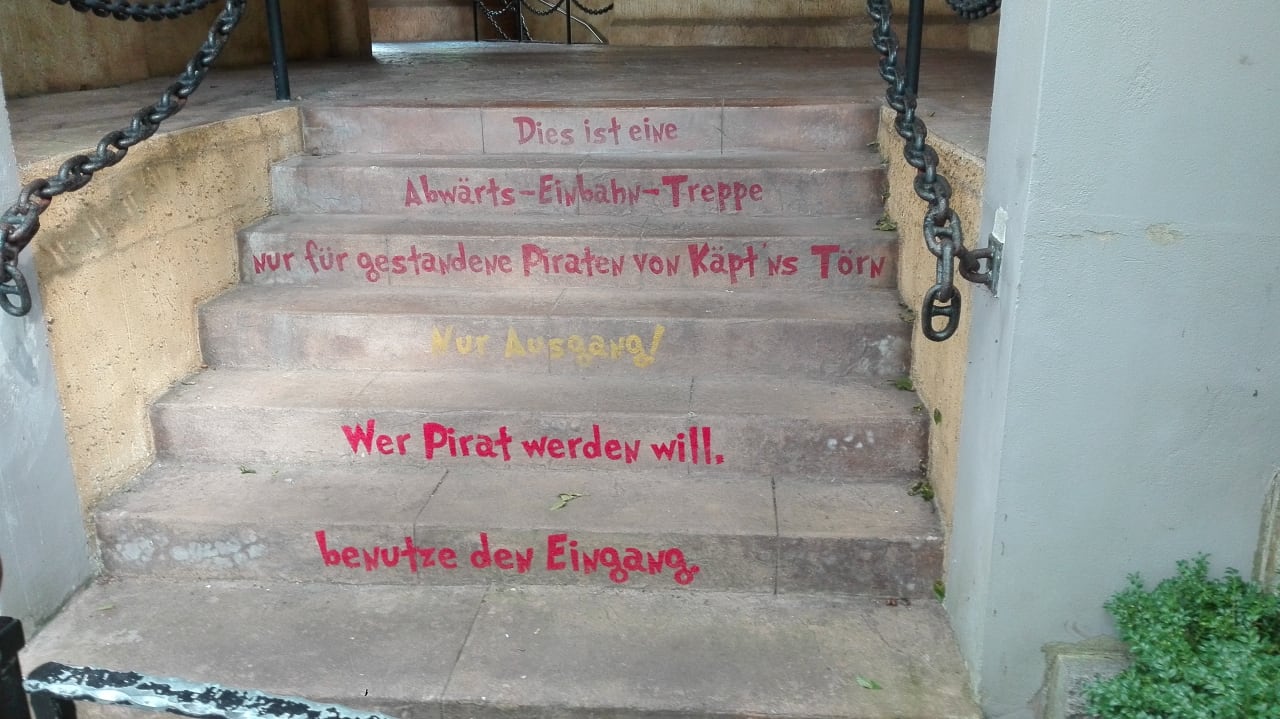 Dies ist eine
Abwärts-Einbahn-Treppe
nur für gestandene Piraten von Käpt'ns Törn
Nur Ausgang!
Wer Pirat werden will,
benutze den Eingang.